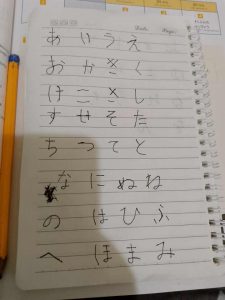 Date: Page:
あ い う え
お か き く
け こ さ し
す せ そ た
ち つ て と
な に ぬ ね
の は ひ ふ
へ ほ ま み